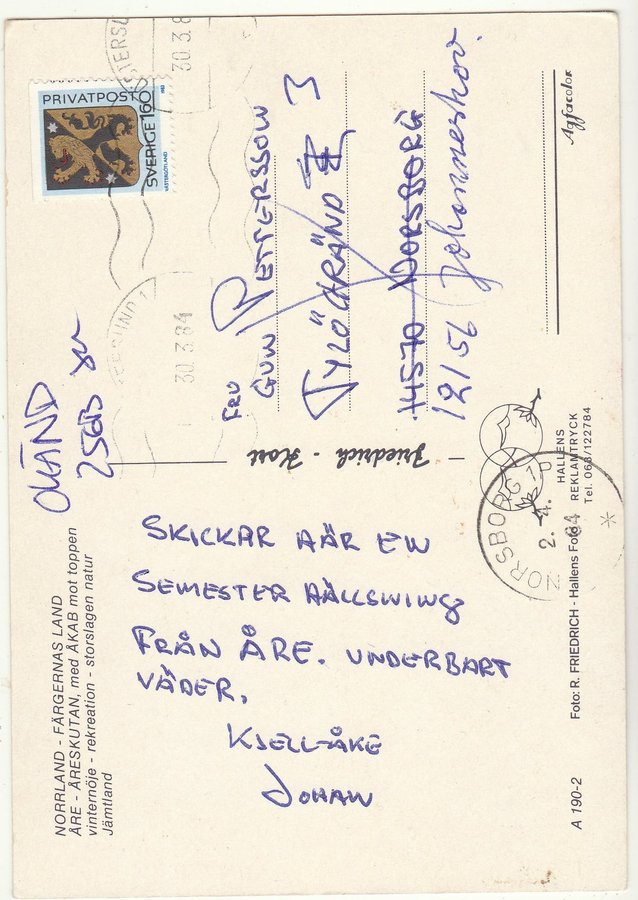 NORRLAND - FÄRGERNAS LAND
ÅRE - ÅRESKUTAN, med ÅKAB mot toppen
vinternöje - rekreation - storslagen natur
Jämtland
SKICKAR HÄR EN
SEMESTER HÄLLSNING
FRÅN ÅRE. UNDERBART
VÄDER.
KJELL-ÅKE
JOHAN
PRIVATPOST
SVERIGE 160
VÄSTERGÖTLAND
1983
30.3.8
30.3.84
OKÄND
FRU
GUN PETTERSSON
TYLÖGRÄND 3
14570 NORSBORG
12156 Johanneshov.
Agfacolor
Friedrich - Kort
NORSBORG 1
2. 4. 84
HALLENS
REKLAMTRYCK
Tel. 063/122784
Foto: R. FRIEDRICH - Hallens Foto
A 190-2